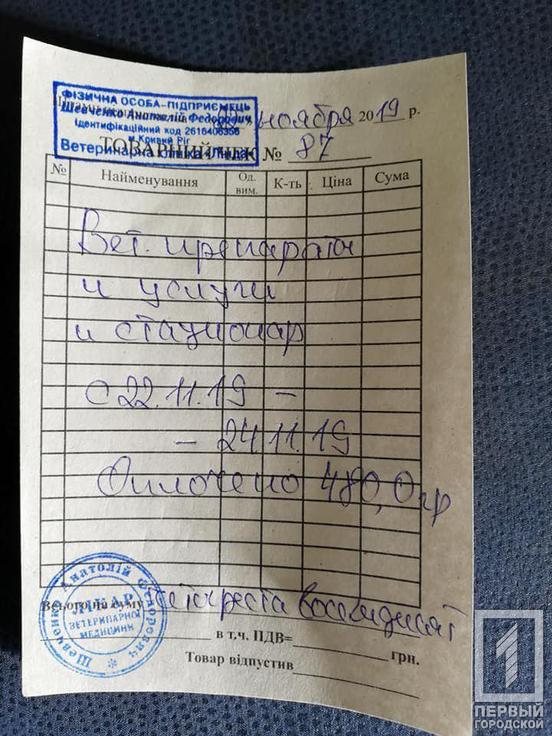 ФІЗИЧНА ОСОБА-ПІДПРИЄМЕЦЬ
Шевченко Анатолій Федорович
Ідентифікаційний код 2616406356
м.Кривий Ріг
Ветеринарна клініка
ноября 2019 р.
ТОВАРНИЙ ЧЕК № 87
№ Найменування Од. вим. К-ть Ціна Сума
Вет. препараты
и услуги
и стационар
с 22.11.19 -
- 24.11.19
Оплочено 480,0 гр
Всього на суму четыреста восемдесят
в т.ч. ПДВ= грн.
Товар відпустив
Шевченко Анатолій Федорович
ЛІКАР
ВЕТЕРИНАРНОЇ
МЕДИЦИНИ
1
ПЕРВЫЙ
ГОРОДСКОЙ